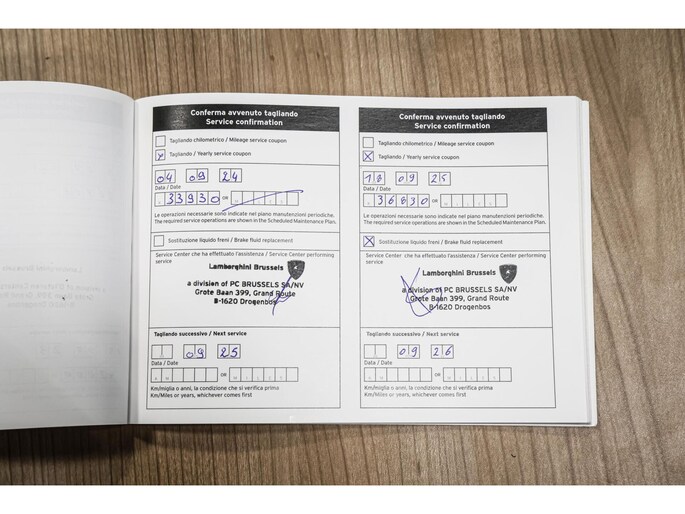 Conferma avvenuto tagliando
Service confirmation
Tagliando chilometrico / Mileage service coupon
Tagliando / Yearly service coupon
04 09 24
Data / Date
33930 OR
Le operazioni necessarie sono indicate nel piano manutenzioni periodiche.
The required service operations are shown in the Scheduled Maintenance Plan.
Sostituzione liquido freni / Brake fluid replacement
Service Center che ha effettuato l'assistenza / Service Center performing
service
Lamborghini Brussels
a division of PC BRUSSELS SA/NV
Grote Baan 399, Grand Route
B-1620 Drogenbos
Tagliando successivo / Next service
09 25
Data / Date
OR
Km/miglia o anni, la condizione che si verifica prima
Km/Miles or years, whichever comes first
Conferma avvenuto tagliando
Service confirmation
Tagliando chilometrico / Mileage service coupon
Tagliando / Yearly service coupon
18 09 25
Data / Date
36830 OR
Le operazioni necessarie sono indicate nel piano manutenzioni periodiche.
The required service operations are shown in the Scheduled Maintenance Plan.
Sostituzione liquido freni / Brake fluid replacement
Service Center che ha effettuato l'assistenza / Service Center performing
service
Lamborghini Brussels
a division of PC BRUSSELS SA/NV
Grote Baan 399, Grand Route
B-1620 Drogenbos
Tagliando successivo / Next service
09 26
Data / Date
OR
Km/miglia o anni, la condizione che si verifica prima
Km/Miles or years, whichever comes first